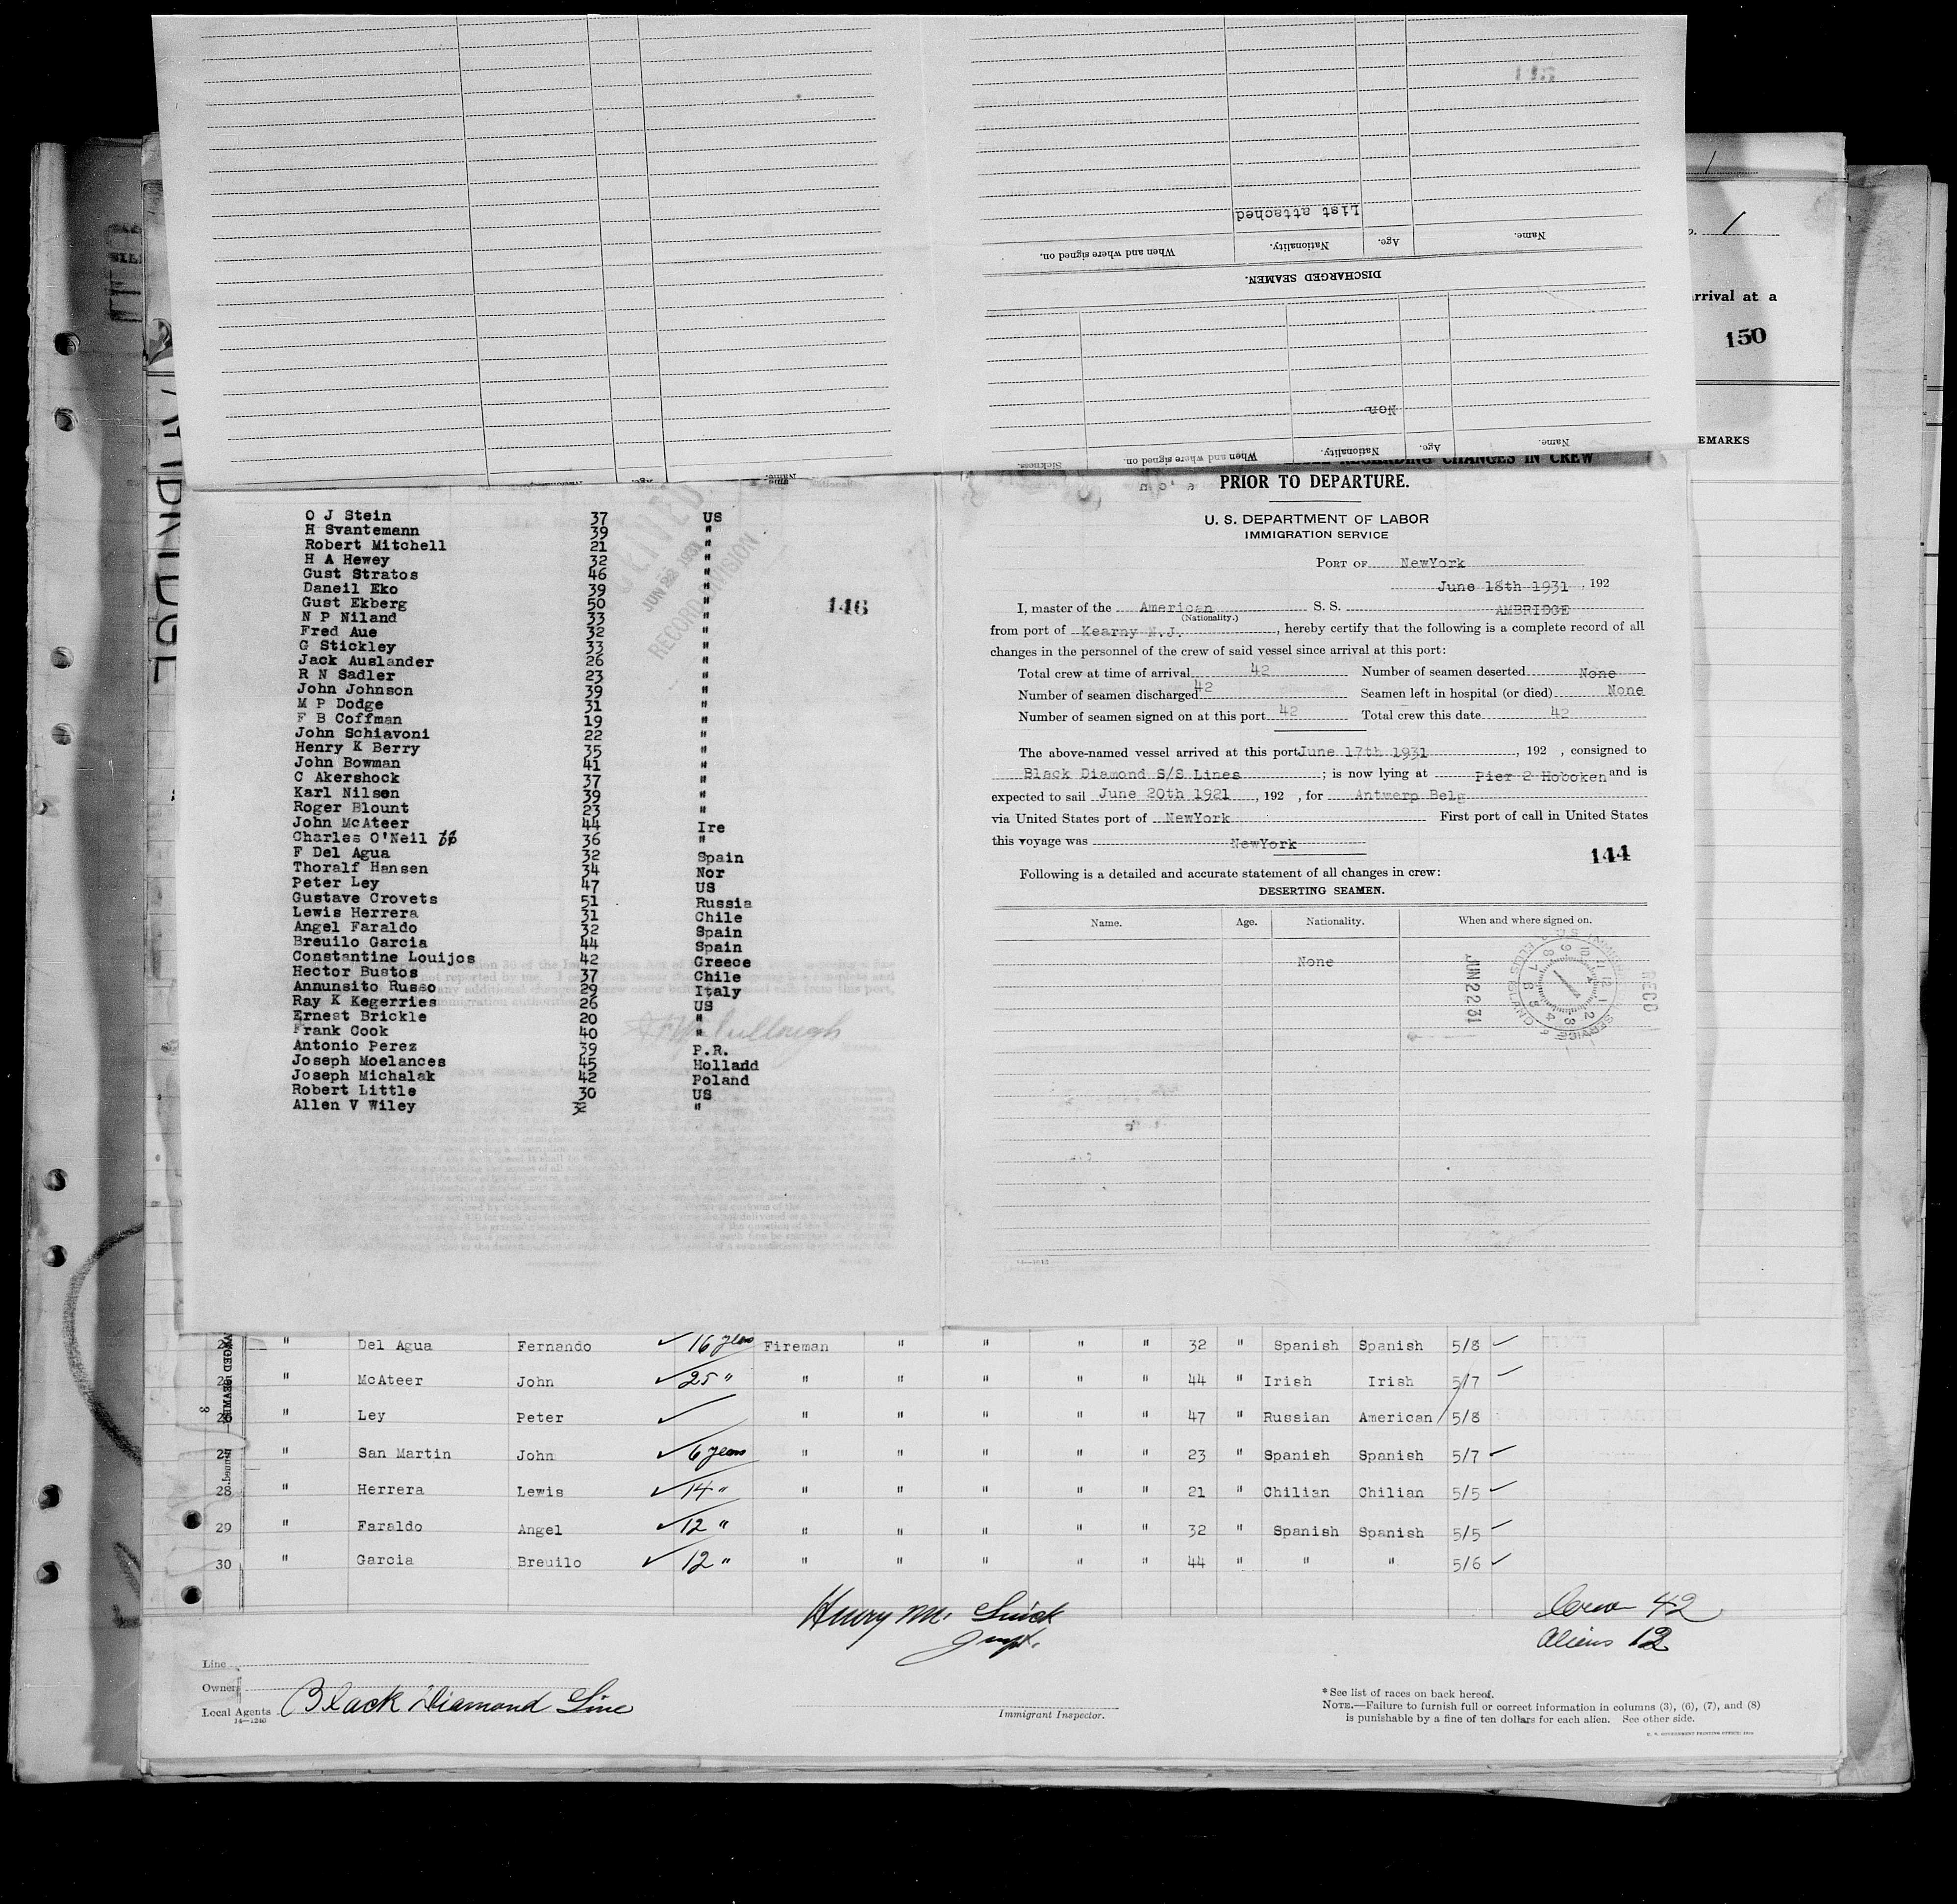 List attached
Name. Age. Nationality. When and where signed on.
DISCHARGED SEAMEN.
Non
Name. Age. Nationality. When and where signed on. Sickness.
1
1
arrival at a
150
EMARKS
O J Stein 37 US
H Svantemann 39 "
Robert Mitchell 21 "
H A Hewey 32 "
Gust Stratos 46 "
Daneil Eko 39 "
Gust Ekberg 50 "
N P Niland 33 "
Fred Aue 32 "
G Stickley 33 "
Jack Auslander 26 "
R N Sadler 23 "
John Johnson 39 "
M P Dodge 31 "
F B Coffman 19 "
John Schiavoni 22 "
Henry K Berry 35 "
John Bowman 41 "
C Akershock 37 "
Karl Nilsen 39 "
Roger Blount 23 "
John McAteer 44 Ire
Charles O'Neil 36 "
F Del Agua 32 Spain
Thoralf Hansen 34 Nor
Peter Ley 47 US
Gustave Crovets 51 Russia
Lewis Herrera 31 Chile
Angel Faraldo 32 Spain
Breuilo Garcia 44 Spain
Constantine Louijos 42 Greece
Hector Bustos 37 Chile
Annunsito Russo 29 Italy
Ray K Kegerries 26 US
Ernest Brickle 20 "
Frank Cook 40 "
Antonio Perez 39 P.R.
Joseph Moelances 45 Holland
Joseph Michalak 42 Poland
Robert Little 30 US
Allen V Wiley 32 "
JUN 22 1931
RECORD DIVISION
146
REGARDING CHANGES IN CREW
PRIOR TO DEPARTURE.
U. S. DEPARTMENT OF LABOR
IMMIGRATION SERVICE
PORT OF NewYork
June 18th 1931, 192
I, master of the American S. S. AMBRIDGE
(Nationality.)
from port of Kearny N.J., hereby certify that the following is a complete record of all
changes in the personnel of the crew of said vessel since arrival at this port:
Total crew at time of arrival 42 Number of seamen deserted None
Number of seamen discharged 42 Seamen left in hospital (or died) None
Number of seamen signed on at this port 42 Total crew this date 42
The above-named vessel arrived at this port June 17th 1931, 192 , consigned to
Black Diamond S/S Lines ; is now lying at Pier 2 Hoboken and is
expected to sail June 20th 1921, 192 , for Antwerp Belg
via United States port of NewYork First port of call in United States
this voyage was NewYork
144
Following is a detailed and accurate statement of all changes in crew:
DESERTING SEAMEN.
Name. Age. Nationality. When and where signed on.
None
JUN 22 31
RECD
" Del Agua Fernando ✓ 16 years Fireman " " " " 32 " Spanish Spanish 5/8 ✓
" McAteer John ✓ 25 " " " " " " 44 " Irish Irish 5/7 ✓
26 " Ley Peter ✓ " " " " " 47 " Russian American 5/8
27 " San Martin John ✓ 6 years " " " " " 23 " Spanish Spanish 5/7 ✓
28 " Herrera Lewis ✓ 14 " " " " " " 21 " Chilian Chilian 5/5 ✓
29 " Faraldo Angel ✓ 12 " " " " " " 32 " Spanish Spanish 5/5 ✓
30 " Garcia Breuilo ✓ 12 " " " " " " 44 " " " 5/6 ✓
Crew 42
Aliens 12
Line
Owners
Local Agents Black Diamond Line
14—1240
Immigrant Inspector.
* See list of races on back hereof.
NOTE.—Failure to furnish full or correct information in columns (3), (6), (7), and (8)
is punishable by a fine of ten dollars for each alien. See other side.